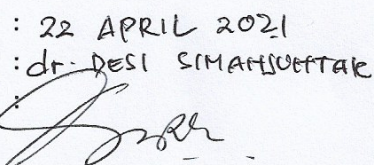 : 22 APRIL 2021
: dr. DESI SIMANJUNTAK
: